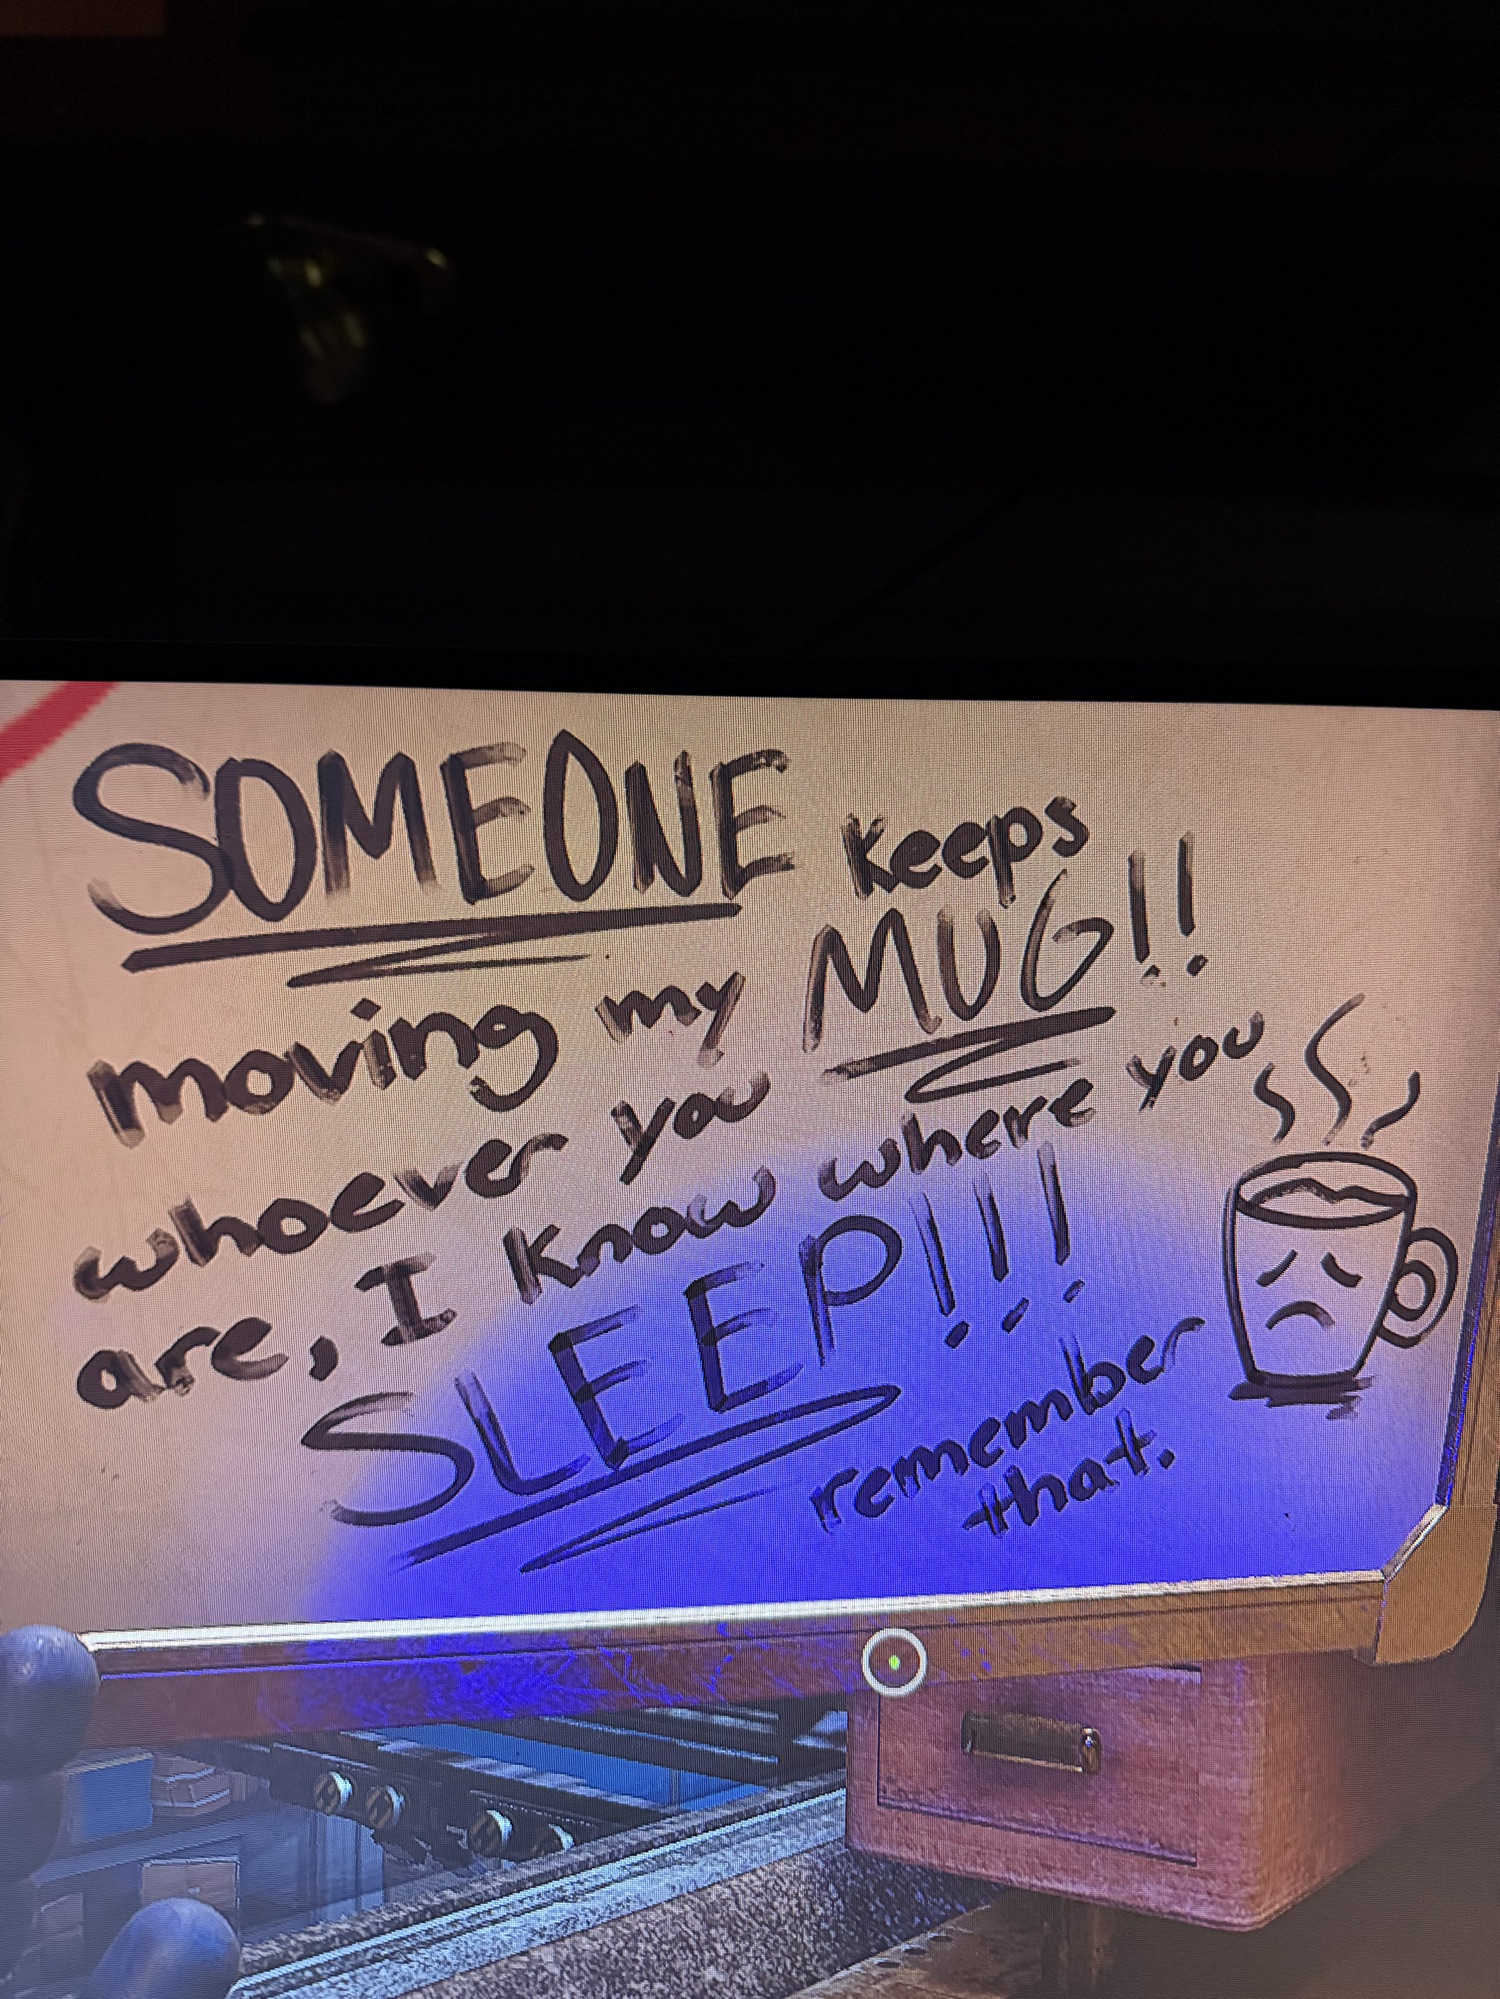 SOMEONE keeps
moving my MUG!!
whoever you
are, I know where you
SLEEP!!!
remember
that.